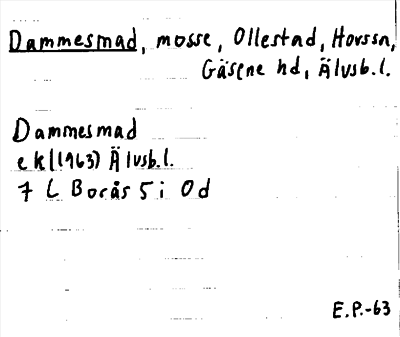 Dammesmad, mosse, Ollestad, Horssn,
Gäsene hd, Älvsb.l.
Dammesmad
ek (1963) Älvsb.l.
7 C Borås 5 i 0 d
E.P.-63